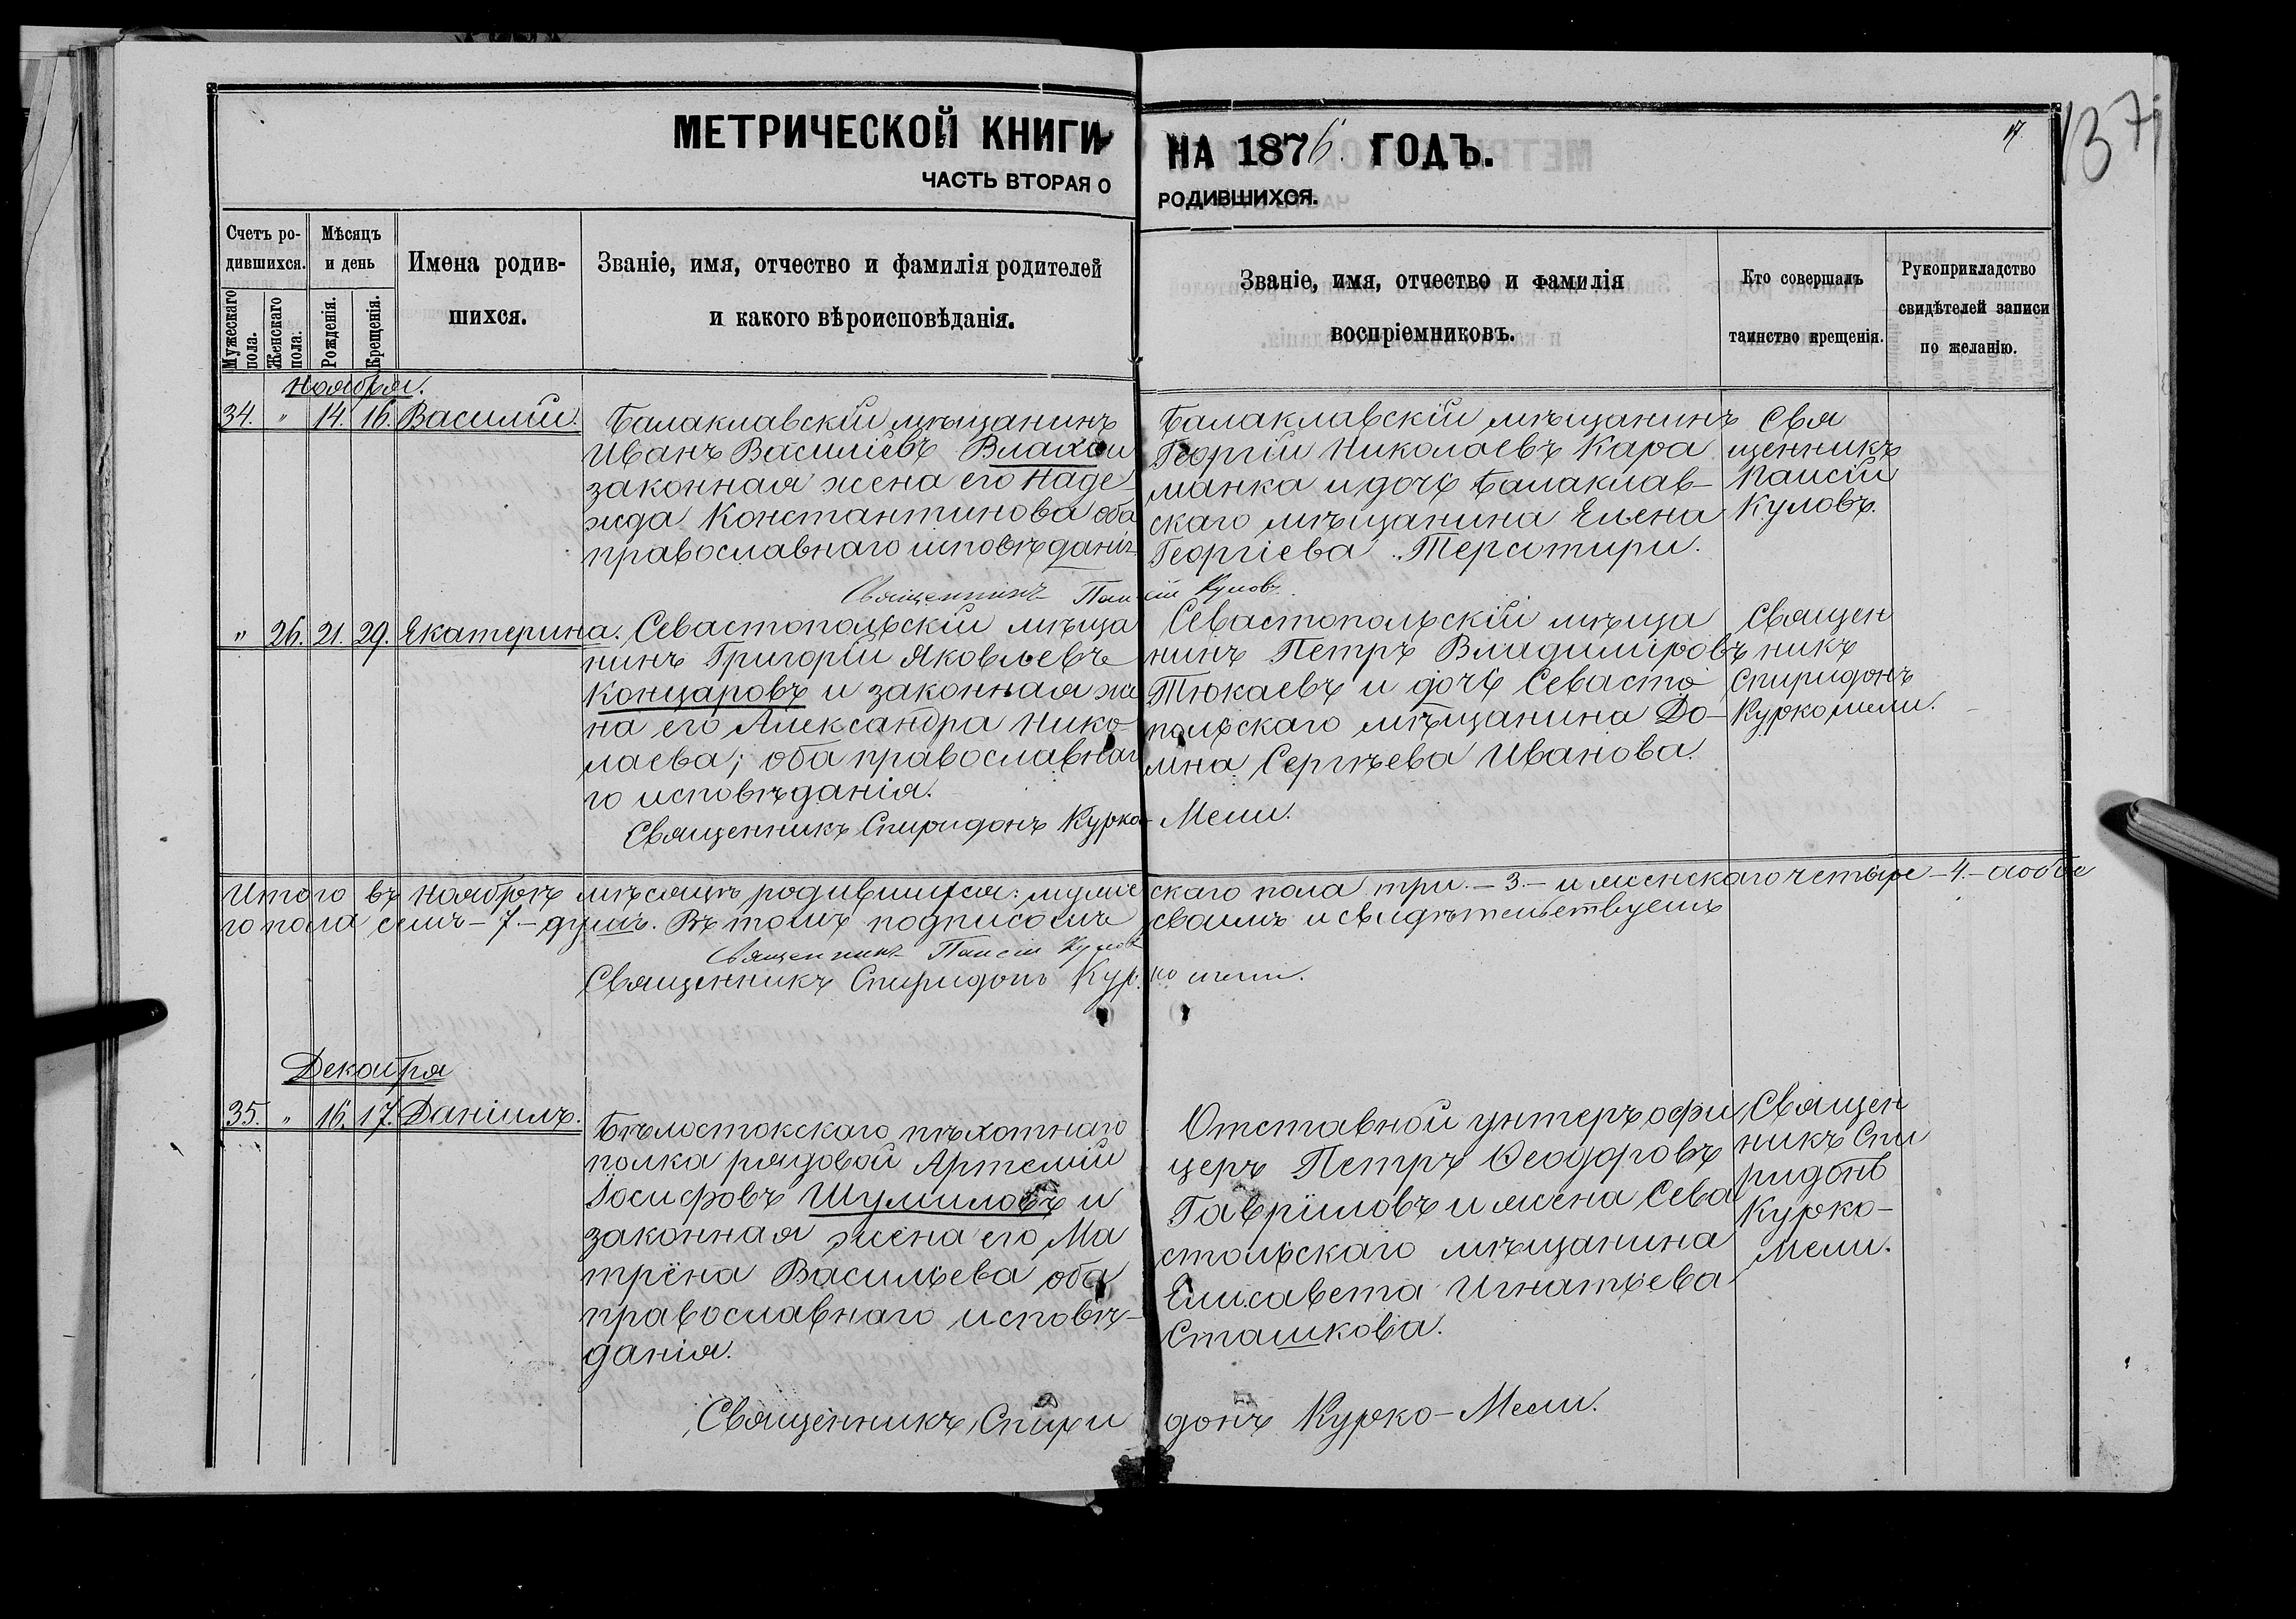 МЕТРИЧЕСКОЙ КНИГИ НА 1876. ГОДЪ.
ЧАСТЬ ВТОРАЯ О РОДИВШИХСЯ.
17
137
Счетъ ро-
дившихся.
Мужескаго пола.
Женскаго пола.
Мѣсяцъ
и день
Рожденія.
Крещенія.
Имена родив-
шихся.
Званіе, имя, отчество и фамилія родителей
и какого вѣроисповѣданія.
Званіе, имя, отчество и фамилія
воспріемниковъ.
Кто совершалъ
таинство крещенія.
Рукоприкладство
свидѣтелей записи
по желанію.
Ноября.
34. " 14. 16. Василій.
Балаклавскій мѣщанинъ
Иванъ Василіевъ Влахои
законная жена его Наде-
жда Константинова оба
православнаго исповѣданія.
Балаклавскій мѣщанинъ
Георгій Николаевъ Кара
манка и дочь Балаклав-
скаго мѣщанина Елена
Георгіева Терситири.
Свя
щенникъ
Паисій
Куловъ.
Священникъ Паисій Куловъ.
" 26. 21. 29. Екатерина.
Севастопольскій мѣща
нинъ Григорій Яковлевъ
Концаровъ и законная же
на его Александра Нико-
лаева; оба православна
го исповѣданія.
Севастопольскій мѣща
нинъ Петръ Владиміровъ
Тюкаевъ и дочь Севасто
польскаго мѣщанина До-
мна Сергѣева Иванова.
Священ
никъ
Спиридонъ
Куркомели.
Священникъ Спиридонъ Курко-Мели.
Итого въ Ноябрѣ мѣсяцѣ родившихся: мужескаго пола три. - 3. - и женскаго четыре - 4. - а обое
го пола семь - 7. - душъ. Въ томъ подписомъ своимъ и свидѣтельствуемъ
Священникъ Паисій Куловъ
Священникъ Спиридонъ Куркомели.
Декабря
35. " 16. 17. Даніилъ.
Бѣлостокскаго пѣхотнаго
полка рядовой Артемій
Іосифовъ Шумиловъ и
законная жена его Ма
трёна Васильева оба
православнаго исповѣ-
данія.
Отставной унтеръ офи
церъ Петръ Ѳеодоровъ
Гавріиловъ и жена Сева
стопольскаго мѣщанина
Елисавета Игнатьева
Сташкова.
Священ
никъ Спи
ридонъ
Курко-
Мели.
Священникъ Спиридонъ Курко-Мели.